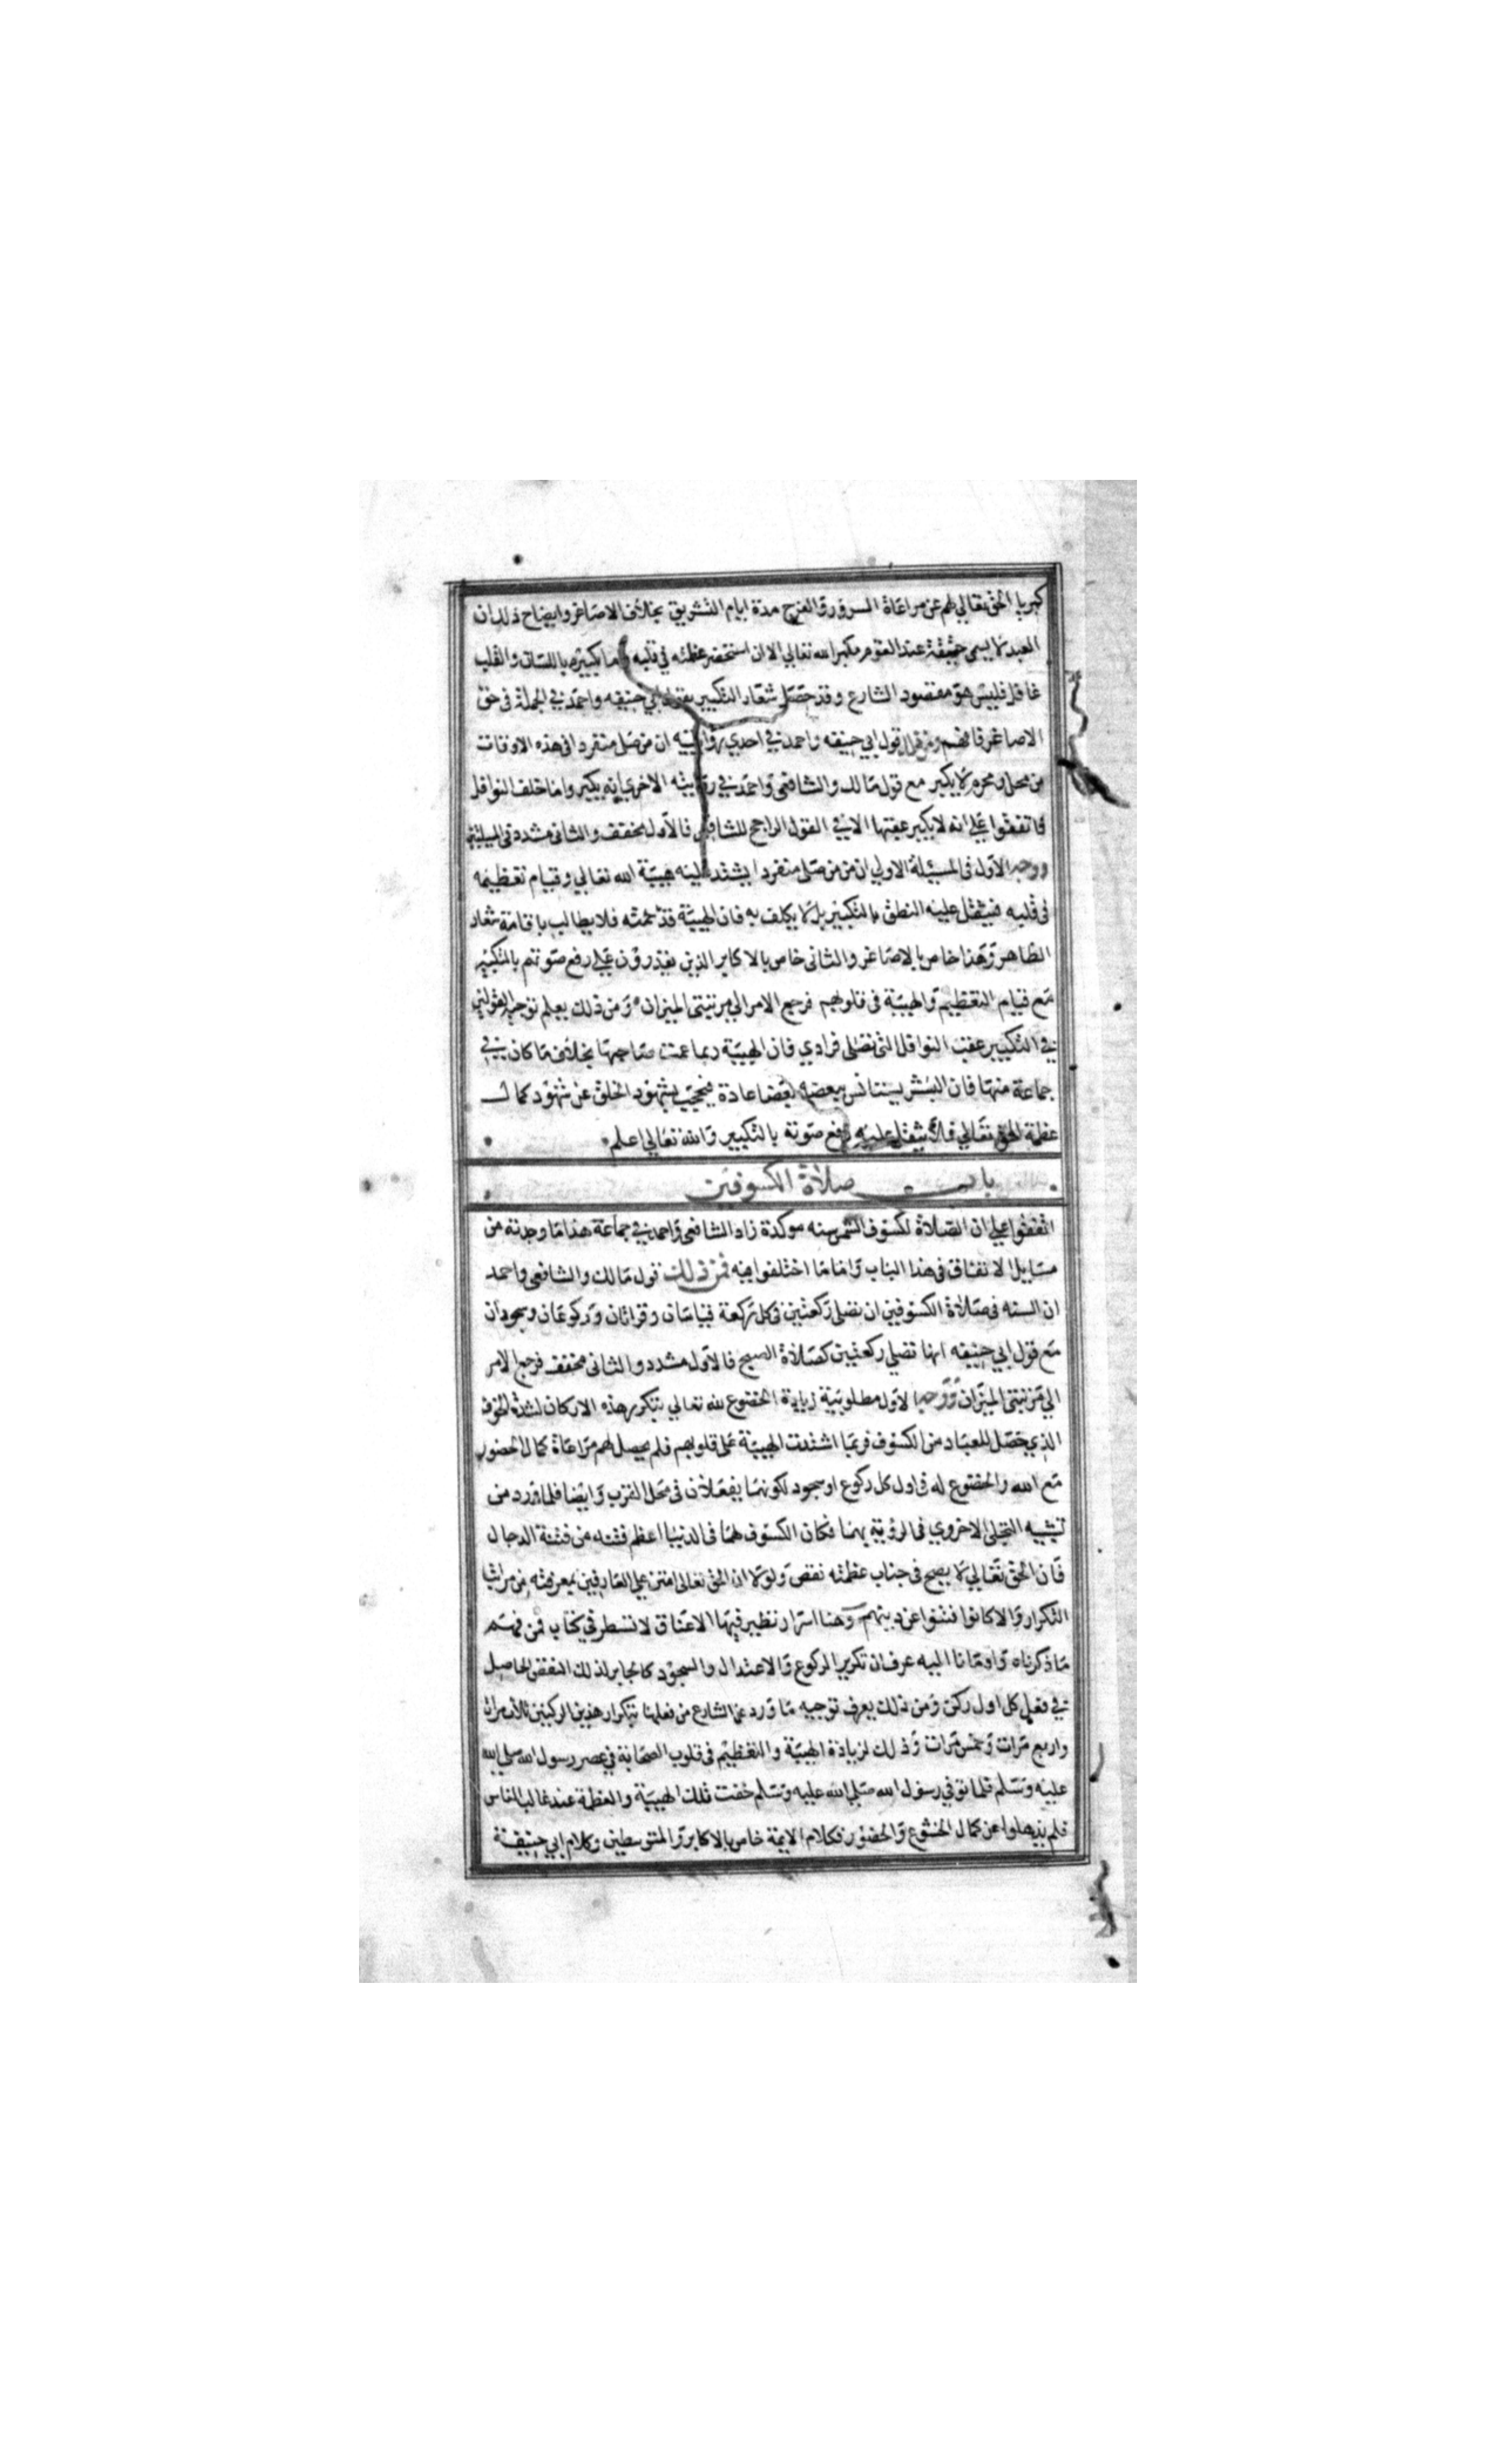 كبريا الحق تعالي لهم عن مراعاة السرور والفرح مدة ايام التشريق بخلاف الاصاغر وايضاح ذلك ان
العبد لا يسمى حقيقة عند القوم مكبرا لله تعالي الا ان استحضر عظمته في قلبه واما تكبيره باللسان والقلب
غافل فليس هو مقصود الشارع وقد حصل شعار التكبير بقول ابي حنيفه واحمد في الجملة في حق
الاصاغر فافهم ومن ذلك قول ابي حنيفه واحمد في احدي روايتيه ان من صلى منفردا في هذه الاوقات
من محل ومحرم لا يكبر مع قول مالك والشافعى واحمد في روايته الاخري انه يكبر واما خلف النوافل
فاتفقوا علي انه لا يكبر عقبها الا في القول الراجح للشافعي فالاول مخفف والثانى مشدد في المسئلتين
ووجه الاول فى المسئلة الاولي ان من صلى منفردا يشتد عليه هيبة الله تعالي وقيام تعظيمه
فى قلبه فيثقل عليه النطق بالتكبير بل لا يكلف به فان الهيبة قد عمته فلا يطالب باقامة شعار
الظاهر وهذا خاص بالاصاغر والثانى خاص بالاكابر الذين يقدرون علي رفع صوتهم بالتكبير
مع قيام التعظيم والهيبة فى قلوبهم فرجع الامر الي مرتبتى الميزان ومن ذلك يعلم توجيه القولين
في التكبير عقب النوافل التى تصلى فرادي فان الهيبة ربما عمت صاحبها بخلاف ما كان في
جماعة منها فان البشر يستانس ببعضه بعضا عادة فيحجب بشهود الخلق عن شهود كمال
عظمة الحق تعالي فلا يثقل عليه رفع صوته بالتكبير والله تعالي اعلم
باب صلاة الكسوفين
اتفقوا علي ان الصلاة لكسوف الشمس سنه موكدة زاد الشافعى واحمد في جماعة هذا ما وجدته من
مسايل الاتفاق فى هذا الباب واما ما اختلفوا فيه فمن ذلك قول مالك والشافعى واحمد
ان السنه فى صلاة الكسوفين ان تصلى ركعتين فى كل ركعة قيامان وقراتان وركوعان وسجودان
مع قول ابي حنيفه انها تصلي ركعتين كصلاة الصبح فالاول مشدد والثانى مخفف فرجع الامر
الي مرتبتى الميزان ووجه الاول مطلوبية زيادة الخضوع لله تعالي بتكرر هذه الاركان لشدة الخوف
الذي حصل للعباد من الكسوف فربما اشتدت الهيبة على قلوبهم فلم يحصل لهم مراعاة كمال الحضور
مع الله والخضوع له فى اول كل ركوع او سجود لكونهما يفعلان فى محل القرب وايضا فلما ورد من
تشبيه التجلى الاخروي فى الرؤية بهما فكان الكسوف لهما فى الدنيا اعظم فتنه من فتنة الدجال
فان الحق تعالي لا يصح فى جناب عظمته نقص ولولا ان الحق تعالى امتن علي العارفين بمعرفته من مراتب
التكرار والا كانوا فتنوا عن دينهم وهنا اسرار تطير فيها الاعناق لا تسطر في كتاب فمن فهم
ما ذكرناه واومانا اليه عرف ان تكرير الركوع والاعتدال والسجود كالجابر لذلك النقص الحاصل
في فعل كل اول ركن ومن ذلك يعرف توجيه ما ورد عن الشارع من فعلها بتكرار هذين الركنين ثلاث مرات
واربع مرات وخمس مرات وذلك لزيادة الهيبة والتعظيم فى قلوب الصحابة في عصر رسول الله صلي الله
عليه وسلم فلما توفي رسول الله صلي الله عليه وسلم خفت تلك الهيبة والعظمة عند غالب الناس
فلم يذهلوا عن كمال الخشوع والحضور فكلام الايمة خاص بالاكابر والمتوسطين وكلام ابي حنيفة